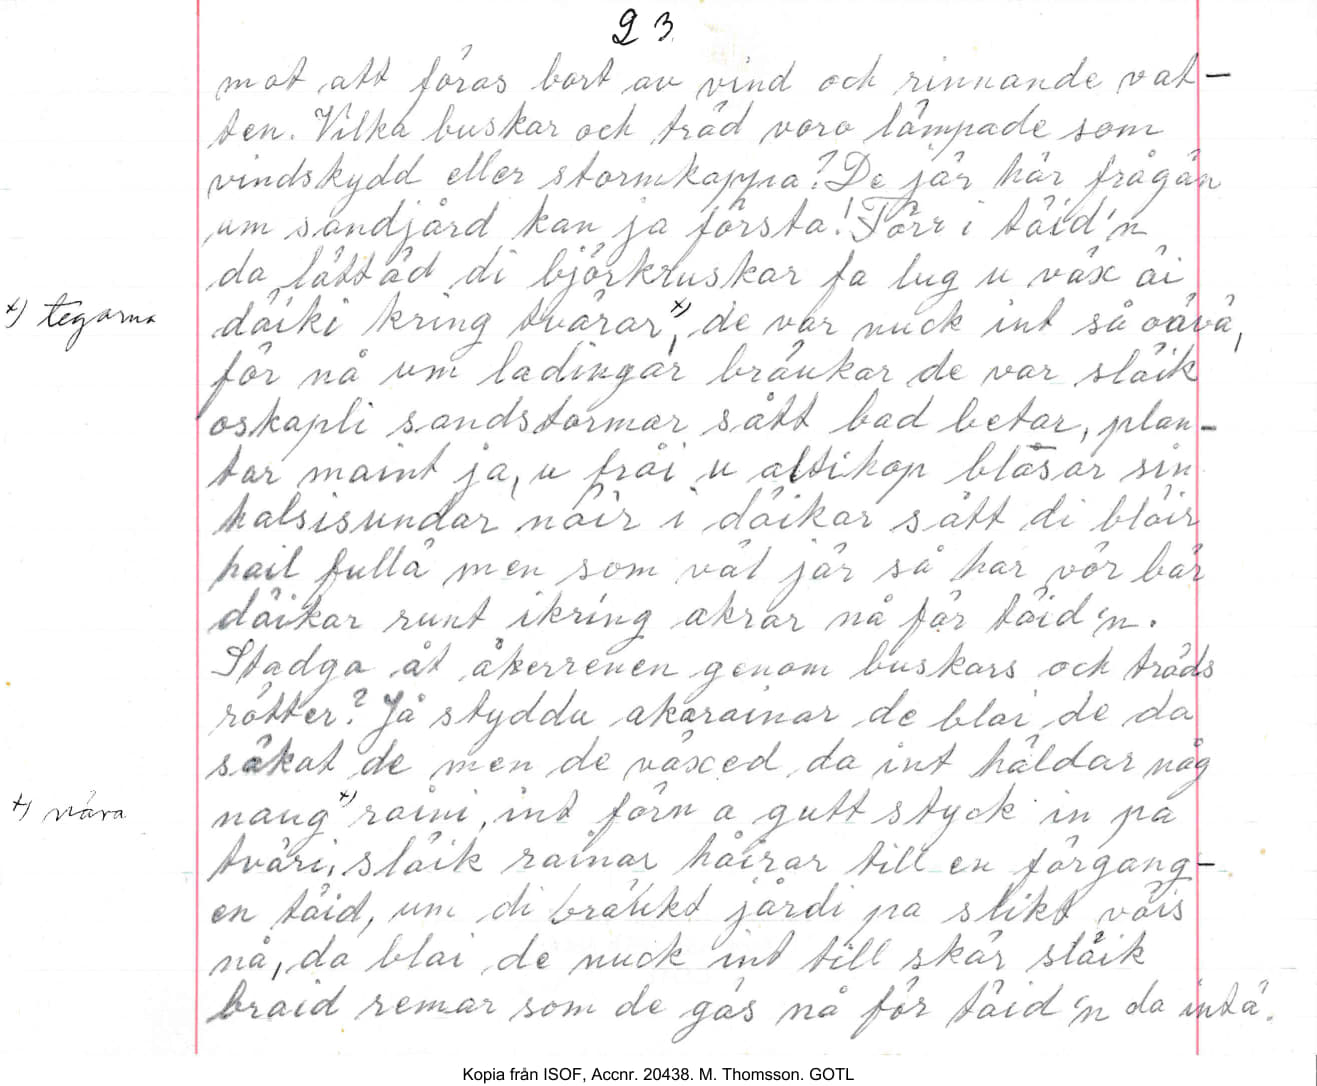 23.
mot att föras bort av vind och rinnande vat-
ten. Vilka buskar och träd voro lämpade som
vindskydd eller stormkappa? De jär här frågän
um sandjård kan ja första! Förr i täid'n
da lättäd di björkruskar fa lug u väx äi
x) tegarna
däiki kring tvärar x), de var nuck int så oävä,
för nå um ladingar bräukar de var släik
oskapli sandstormar sått bad betar, plan-
tar maint ja, u fräi u altihop bläsar sin
halsisundar näir i däikar sått di bläir
hail fullä men som väl jär så har vör bär
däikar runt ikring akrar nå för täid'n.
Stadga åt åkerrenen genom buskars och träds
rötter? Jå styddu akarainar de blai de da
säkat de men de växed da int häldar någ
x) våra
naug x) raini, int förn a gutt styck in pa
tväri, släik rainar håirar till en förgang-
en täid, um di bräukt jårdi pa slikt väis
nå, da blai de nuck int till skär släik
braid remar som de gäs nå för täid'n da intä.
Kopia från ISOF, Accnr. 20438. M. Thomsson. GOTL